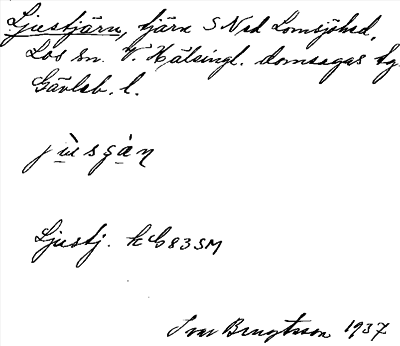 Ljustjärn, tjärn S Nsd Lomsjöhed,
Los sn. V. Hälsingl. domsagas tg.
Gävleb. l.
Ljustj. kC 83 SM
Ivar Bengtsson 1937